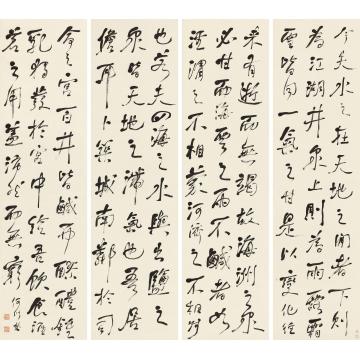 今夫水之在天地者下則
為江湖井泉上則為雨露霜
雪皆同一氣之甘是以變化往
來有逝而無竭故海洲之泉
必甘而海雲之不鹹者如
涇渭之不相亂河濟之不相涉
也若夫四海之水與之
泉皆天地之滯氣也吾居
儋耳卜築城南鄰於司
命之宮百井皆鹹而醪醴湩
乳獨發於宮中給吾飲食酒
茗之用蓋沛然而無窮